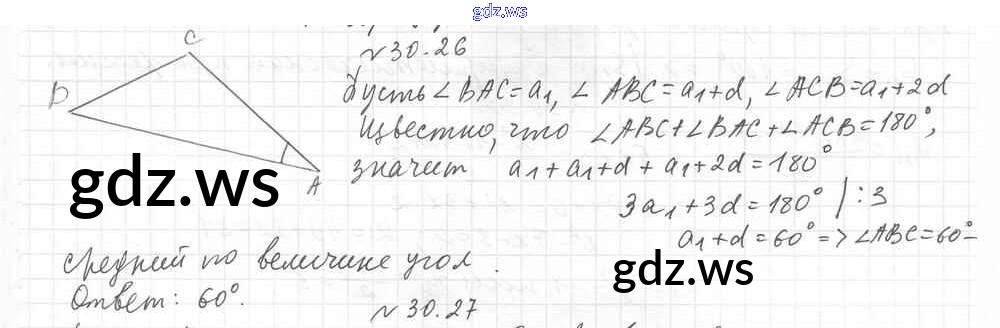 gdz.ws
№30.26
C
B
A
Пусть ∠BAC=a₁, ∠ABC=a₁+d, ∠ACB=a₁+2d
Известно, что ∠ABC+∠BAC+∠ACB=180°,
значит a₁+a₁+d+a₁+2d=180°
gdz.ws
3a₁+3d=180° | :3
a₁+d=60° => ∠ABC=60° –
средний по величине угол.
gdz.ws
Ответ: 60°.
№30.27